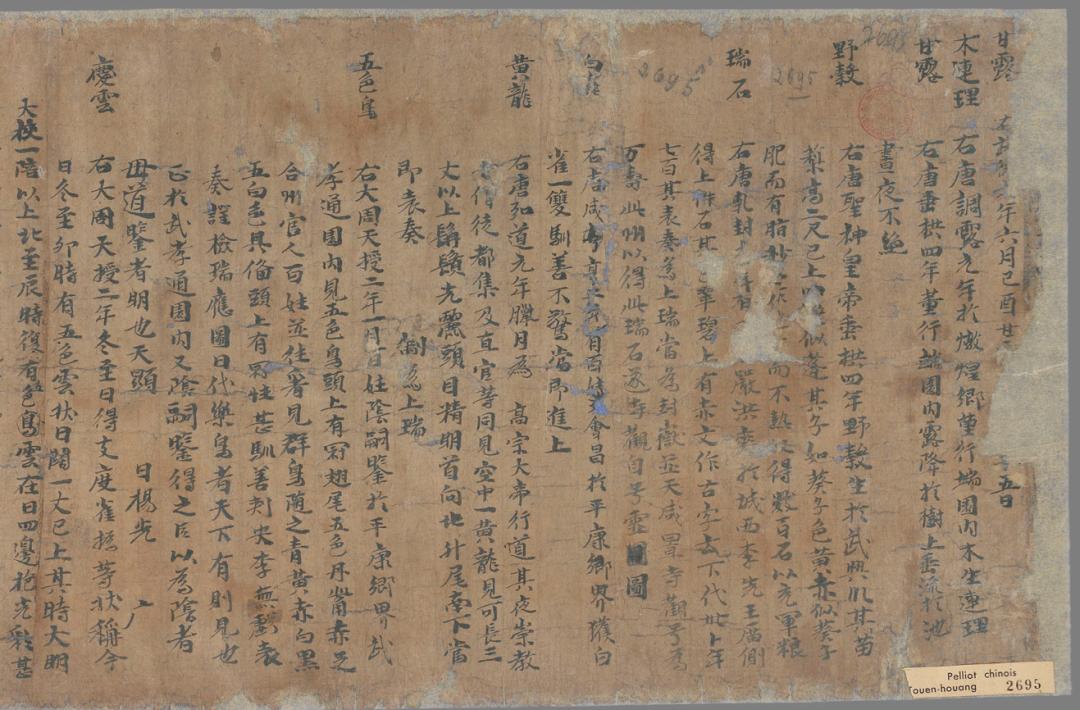 甘露 年六月己酉 五日
木連理 右唐調露元年於燉煌鄉董行端園內木生連理
甘露 右唐垂拱四年董行端園內露降於樹上垂流於池
晝夜不絕
野穀 右唐聖神皇帝垂拱四年野穀生於武興川其苗
藜高二尺已上 似蓬其子如葵子色黃赤似葵子
肥而有脂炒之 而不熱收得數百石以充軍粮
瑞石 右唐乾封 有百 嚴洪爽於城西李先王廟側
得上件石其色翠碧上有赤文作古字云下代卅上年
七百其表奏為上瑞當為封嶽並天咸置寺觀号為
万壽此州以得此瑞石遂寺觀自号靈圖
白雀 右唐咸亨 百姓 會昌於平康鄉界獲白
雀一雙馴善不驚當即進上
黃龍 右唐弘道元年臘月為 高宗大帝行道其夜崇教
寺僧徒都集及直官等同見空中一黃龍見可長三
丈以上髯鬚光麗頭目精明首向北升尾南下當
即表奏 制為上瑞
五色鳥 右大周天授二年一月百姓陰嗣鑒於平康鄉界武
孝通園內見五色鳥頭上有冠翅尾五色丹觜赤足
合州官人百姓並往看見群鳥隨之青黃赤白黑
五白色具俻頭上有冠性甚馴善刺史李無虧表
奏謹檢瑞應圖曰代樂鳥者天下有則見也
止於武孝通園內又陰嗣鑒得之臣以為陰者
母道鑒者明也天顯
日楊光
慶雲 右大周天授二年冬至日得支度崔撝等狀稱今
日冬至卯時有五色雲扶日闊一丈已上其時大明
大校一倍以上比至辰時復有五色鳥雲在日四邊抱光彩甚
2695
2695
2695
Pelliot chinois
Touen-houang 2695